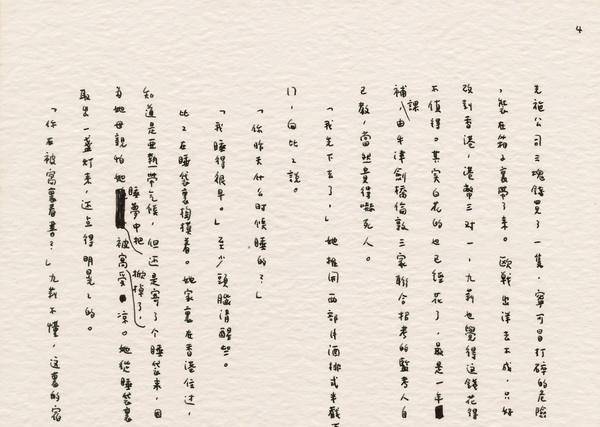 4
先施公司三塊錢買了一隻,寧可冒打碎的危險
,裝在箱子裏帶了來。歐戰出洋去不成,只好
改到香港,港幣三对一,九莉也覺得這錢花得
不值得。其实白花的也已經花了,最是一年
補課由牛津劍橋倫敦三家聯合招考的監考人自
己教,當然貴得嚇死人。
「我先下去了,」她推開西部片酒排式半截
门,向比々說。
「你昨天什么时候睡的?」
「我睡得很早。」至少頭腦清醒些。
比々在睡袋裏掏摸着。她家裏在香港住过,
知道是亞熱帶气候,但还是寄了个睡袋來,因
为她母親怕她睡夢中把被窩掀掉了,受凉。她從睡袋裏
取出一盞灯來,还点得明晃々的。
「你在被窩裏看書?」九莉不懂,这裏的宿